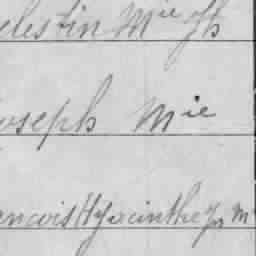 elestin Mie Jh
oseph Mie
ancois Hyacinthe